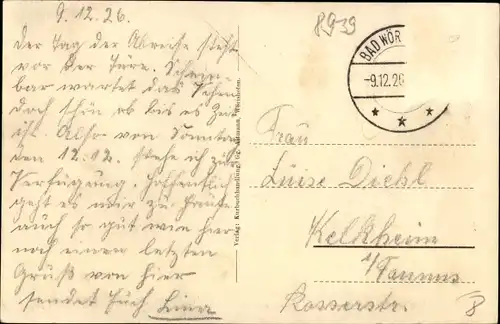 9.12.26.
der Tag der Abreise steht
vor der Türe. Schein-
bar wartet das
doch schön ob bis es Zeit
ist. Also von Sonntag
den 12.12. stehe ich zur
Verfügung. Hoffentlich
geht es mir zu Hause
auch so gut wie hier
noch einen letzten
Gruß von hier
sendet Euch Lina
8939
BAD WÖR
-9.12.26
Verlag: Kurbuchhandlung
Frau
Luise Diehl
Kelkheim
i/Taunus
Rosserstr.
8